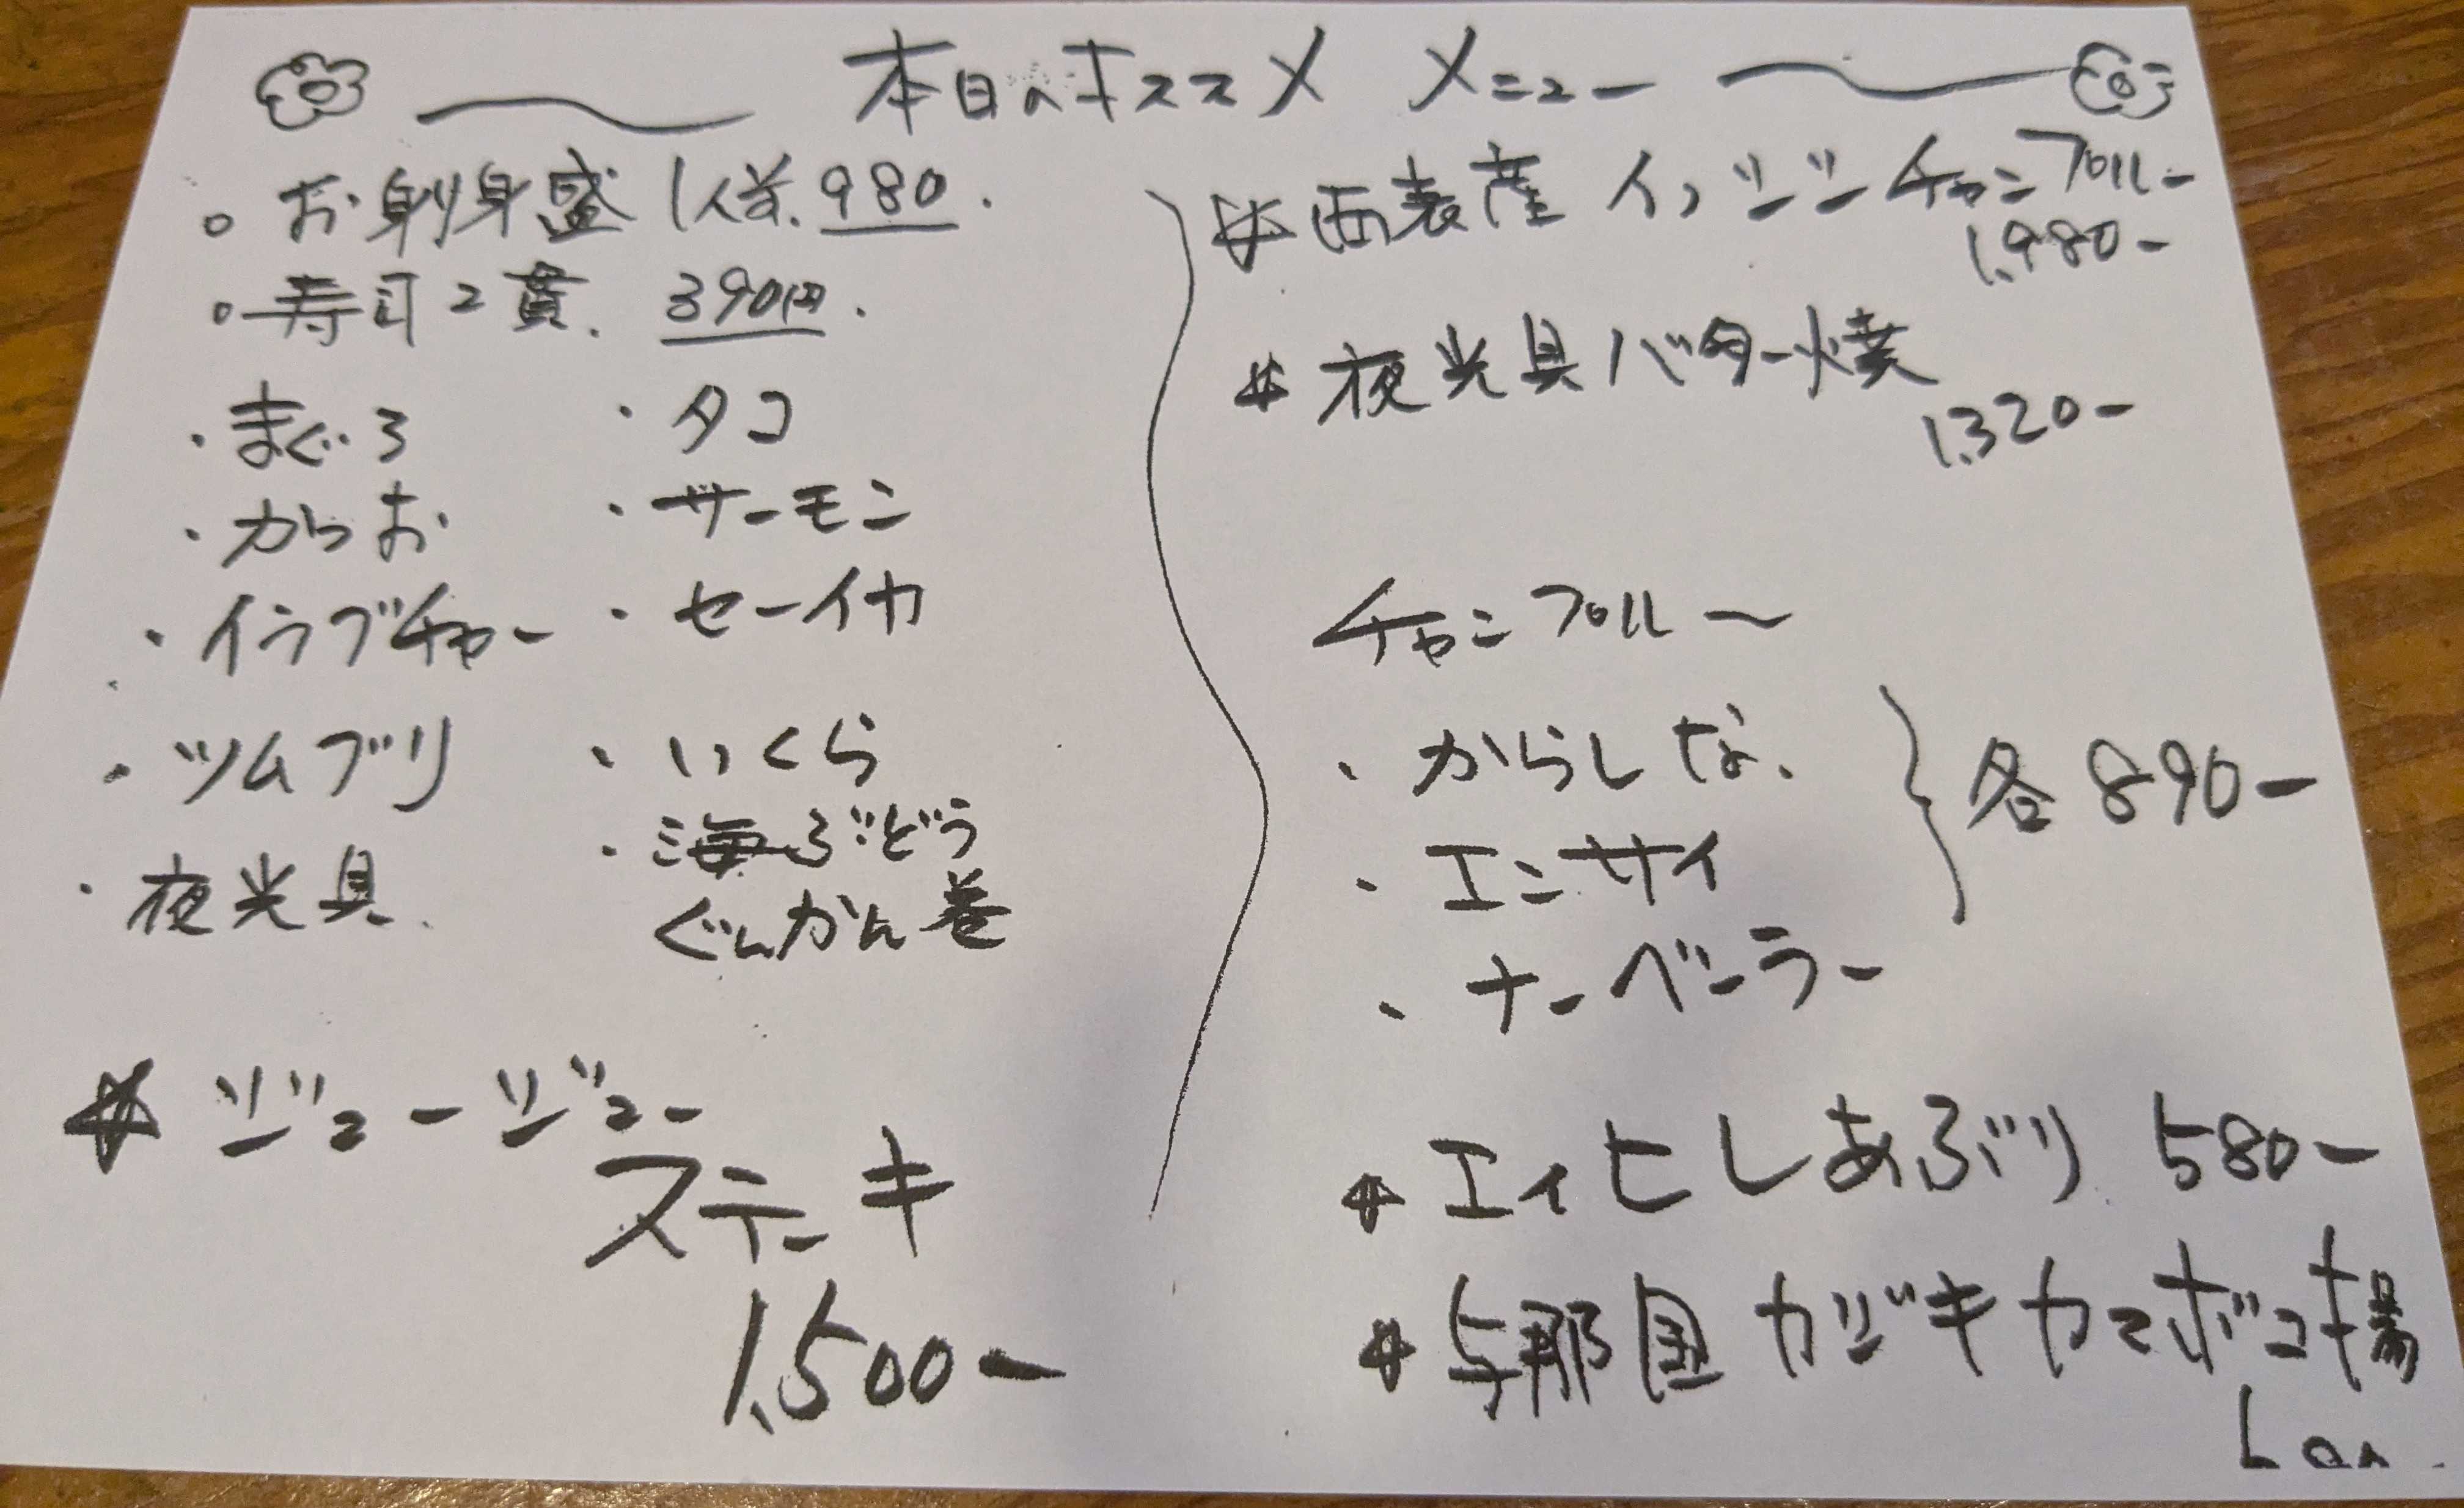 本日のオススメ メニュー
○ お刺身盛 1人前 980.
○ 寿司2貫. 390円.
・まぐろ
・かつお
・イラブチャー
・ツムブリ
・夜光貝.
・タコ
・サーモン
・セーイカ
・いくら
・海ぶどう
ぐんかん巻
☆ ジュージュー
ステーキ
1,500-
☆ 西表産 イノシシ チャンプルー
1,980-
☆ 夜光貝バター焼
1,320-
チャンプルー
・からしな.
・エンサイ
・ナーベーラー
各890-
☆ エイヒレあぶり 580-
☆ 与那国 カジキカマボコ揚